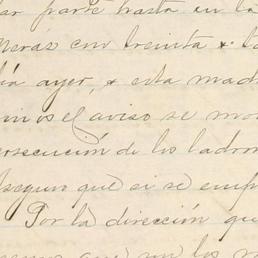 dar parte hasta en la
neras con treinta & t
día ayer, & esta mad
imos el aviso se mo
ersecución de los ladron
Aseguro que si se emp
Por la dirección que